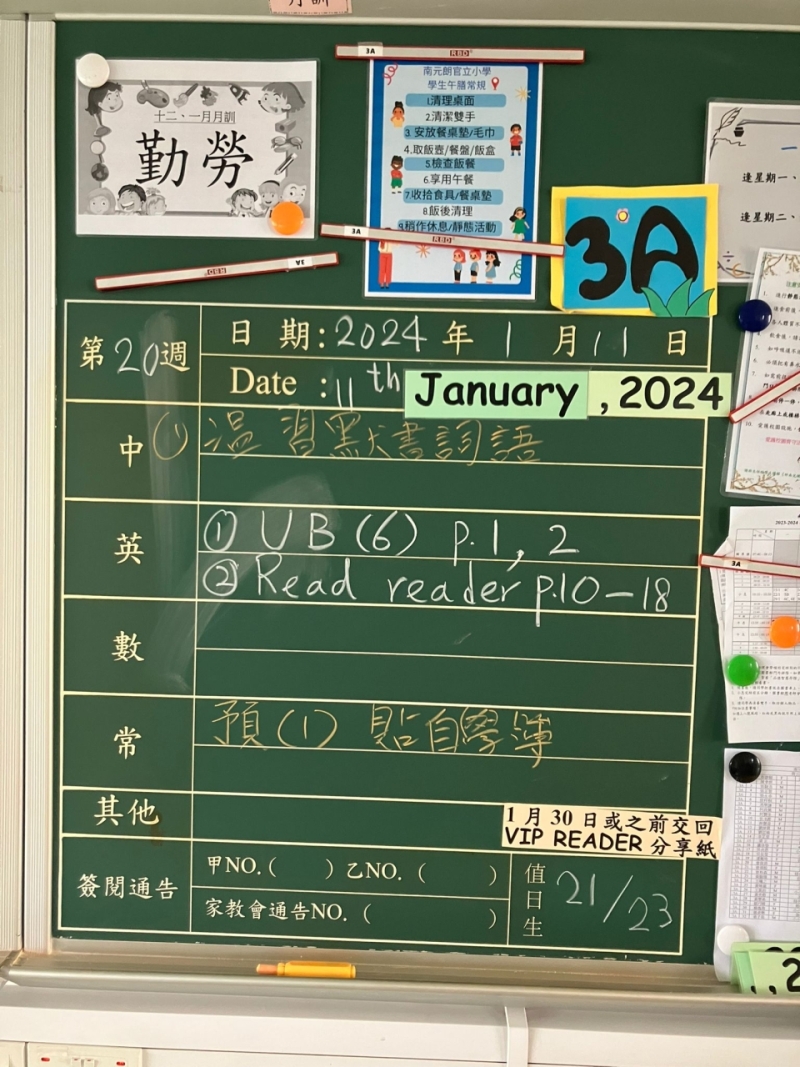 月訓
十二、一月月訓
勤勞
3A RBD
南元朗官立小學
學生午膳常規
1.清理桌面
2.清潔雙手
3.安放餐桌墊/毛巾
4.取飯壺/餐盤/飯盒
5.檢查飯餐
6.享用午餐
7.收拾食具/餐桌墊
8.飯後清理
9.稍作休息/靜態活動
3A RBD
3A
3A
逢星期一、
逢星期二、
第20週
日期:2024年1月11日
Date :11th January , 2024
中 ① 温習默書詞語
英 ① UB (6) p.1, 2
② Read reader p.10-18
數
常 預(1) 貼自學簿
其他
1月30日或之前交回
VIP READER 分享紙
簽閱通告
甲NO.( ) 乙NO. ( )
家教會通告NO. ( )
值日生 21/23
3A